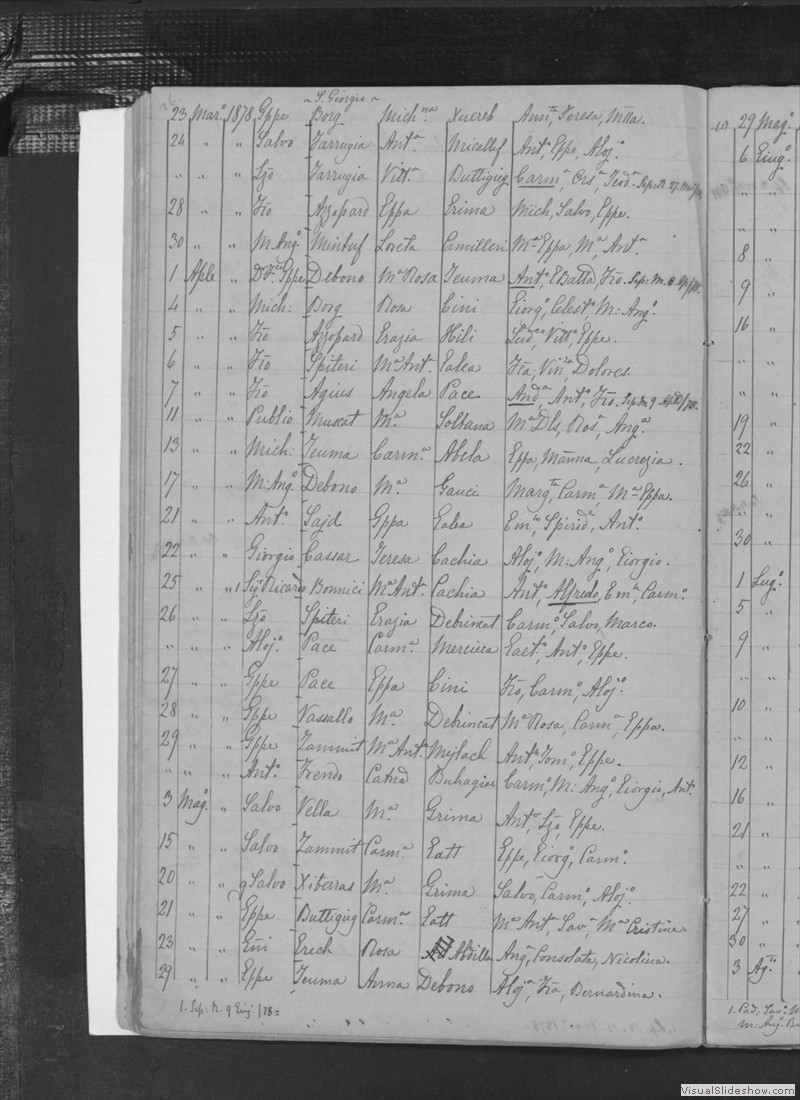 ~ S. Giorgio ~
23 Mar.º 1878 Gppe Borg Mich.na Xuereb Ann.ta, Teresa, Mtta.
24 " " Salvo Farrugia Ant.a Micallef Ant.º, Eppe, Aloj.º
" " " Ljo Farrugia Vitt.a Buttigieg Carm.a, Ors.a, Teod.a
28 " " Fco Azzopard Eppa Grima Mich, Salvo, Eppe.
30 " " M. Ang.º Mintuf Loreta Camilleri M.a Eppa, M.a, Ant.a
1 Aple " Gppe Debono M.a Rosa Teuma Ant.º, GBatta, Fco.
4 " " Mich: Borg Rosa Cini Giorg.º, Celest.º, M: Ang.º
5 " " Fco Azzopard Grazia Hili Vitt.º, Eppe.
6 " " Fco Spiteri M.a Ant. Galea Fca, Vin.za, Dolores.
7 " " Fco Agius Angela Pace And.a, Ant.º, Fco. Sep: M. 9 Aple/78.
11 " " Publio Muscat M.a Soltana M.a Dls, Ros.a, Ang.a
13 " " Mich: Teuma Carm.a Abela Eppa, Marina, Lucrezia.
17 " " M: Ang.º Debono M.a Gauci Marg.ta, Carm.a, M.a Eppa.
21 " " Ant.º Sajd Gppa Galea Em.le, Spirid.e, Ant.º
22 " " Giorgio Cassar Teresa Cachia Aloj.º, M: Ang.º, Giorgio.
25 " " 1 Sig. Ricardo Bonnici M.a Ant. Cachia Ant.º, Alfredo, Em.e, Carm.º
26 " " Ljo Spiteri Grazia Debrincat Carm.º, Salvo, Marco.
" " " Aloj.º Pace Carm.a Mercieca Gaet.º, Ant.º, Eppe.
27 " " Gppe Pace Eppa Cini Fco, Carm.º, Aloj.º
28 " " Gppe Vassallo M.a Debrincat M.a Rosa, Carm.a, Eppa.
29 " " Gppe Zammit M.a Ant. Mejlach Ant.º, Tom.º, Eppe.
" " " Ant.º Trendo Catna Buhagiar Carm.º, M: Ang.º, Giorgio, Ant.º
3 Mag.º " Salvo Vella M.a Grima Ant.º, Ljo, Eppe.
15 " " Salvo Zammit Carm.a Gatt Eppe, Giorg.º, Carm.º
20 " " Salvo Xiberras M.a Grima Salv.º, Carm.º, Aloj.º
21 " " Eppe Buttigieg Carm.a Gatt M.a Ant., Sav.a, M.a Cristina.
23 " " Grech Rosa Abdilla Ang.a, Consolata, Nicolina.
29 " " Eppe Teuma Anna Debono Aloj.a, Fca, Bernardina.
1. Sep: M. 9 Giug.º/78=
29 Mag.º
6 Giug.º
" "
" "
8 "
9 "
16 "
" "
" "
19 "
22 "
26 "
" "
30 "
1 Lug.º
5 "
9 "
" "
10 "
" "
12 "
16 "
21 "
" "
22 "
27 "
30 "
3 Ag.to
VisualSlideshow.com